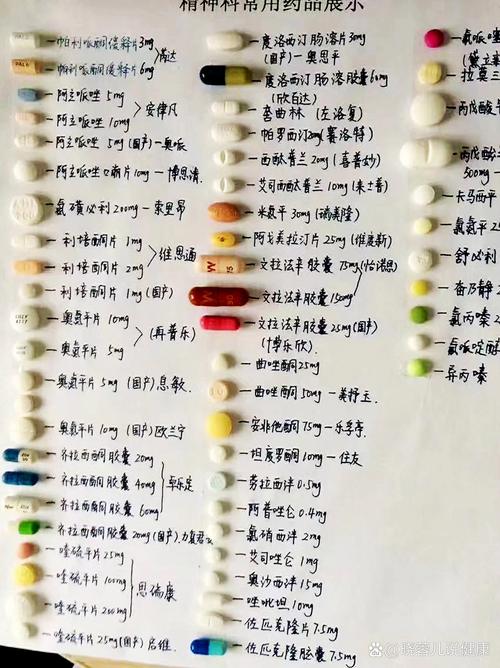 精神科常用药品展示
帕利哌酮缓释片3mg
帕利哌酮缓释片6mg
芮达
阿立哌唑 5mg
阿立哌唑 10mg
安律凡
阿立哌唑 5mg (国产)-奥派
阿立哌唑口崩片10mg-博思清
氨磺必利200mg-索里昂
利培酮片 1mg
利培酮片 2mg
维思通
利培酮片 1mg (国产)
奥氮平片 10mg
奥氮平片 5mg
(再普乐)
奥氮平片 5mg (国产)悉敏
奥氮平片 10mg (国产)欧兰宁
齐拉西酮胶囊 20mg
齐拉西酮胶囊 40mg
齐拉西酮胶囊 60mg
卓乐定
齐拉西酮胶囊 20mg (国产)力复君安
喹硫平片 25mg
喹硫平片 100mg
喹硫平片 200mg
思瑞康
喹硫平片 25mg (国产)启维
度洛西汀肠溶片30mg
(国产)-奥思平
度洛西汀肠溶胶囊60mg
(欣百达)
舍曲林 (左洛复)
帕罗西汀20mg(赛洛特)
西酞普兰20mg(喜普妙)
艾司西酞普兰10mg(来士普)
米氮平30mg(瑞美隆)
阿戈美拉汀片25mg(维度新)
文拉法辛胶囊 75mg
文拉法辛胶囊 150mg
(怡诺思)
文拉法辛胶囊 25mg(国产)
(博乐欣)
曲唑酮 25mg
曲唑酮 50mg-美抒玉
安非他酮 75mg-乐孚亭
坦度罗酮 10mg-住友
劳拉西泮 0.5mg
阿普唑仑 0.4mg
氯硝西泮 2mg
艾司唑仑 1mg
奥沙西泮 15mg
唑吡坦 10mg
佐匹克隆片7.5mg
佐匹克隆胶囊 7.5mg
氯哌
拉莫三
丙戊酸
丙戊酸
500mg
卡马西平
氯氮平 25
舒必利
奋乃静 2
氯丙嗪 2
氟哌啶醇
异丙嗪
晓蓉儿说健康